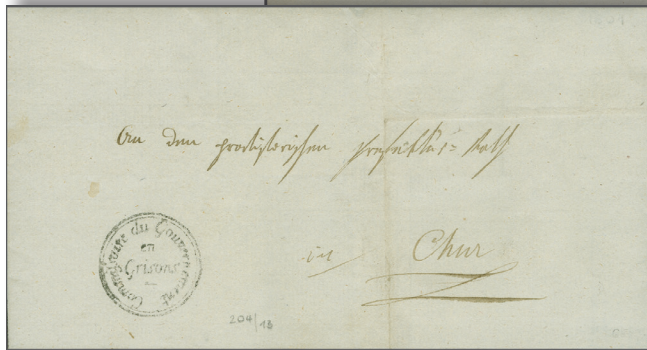 An den provisorischen Präfektur=Rath
in Chur
Commissaire du Gouvernement
en
Grisons
204/13